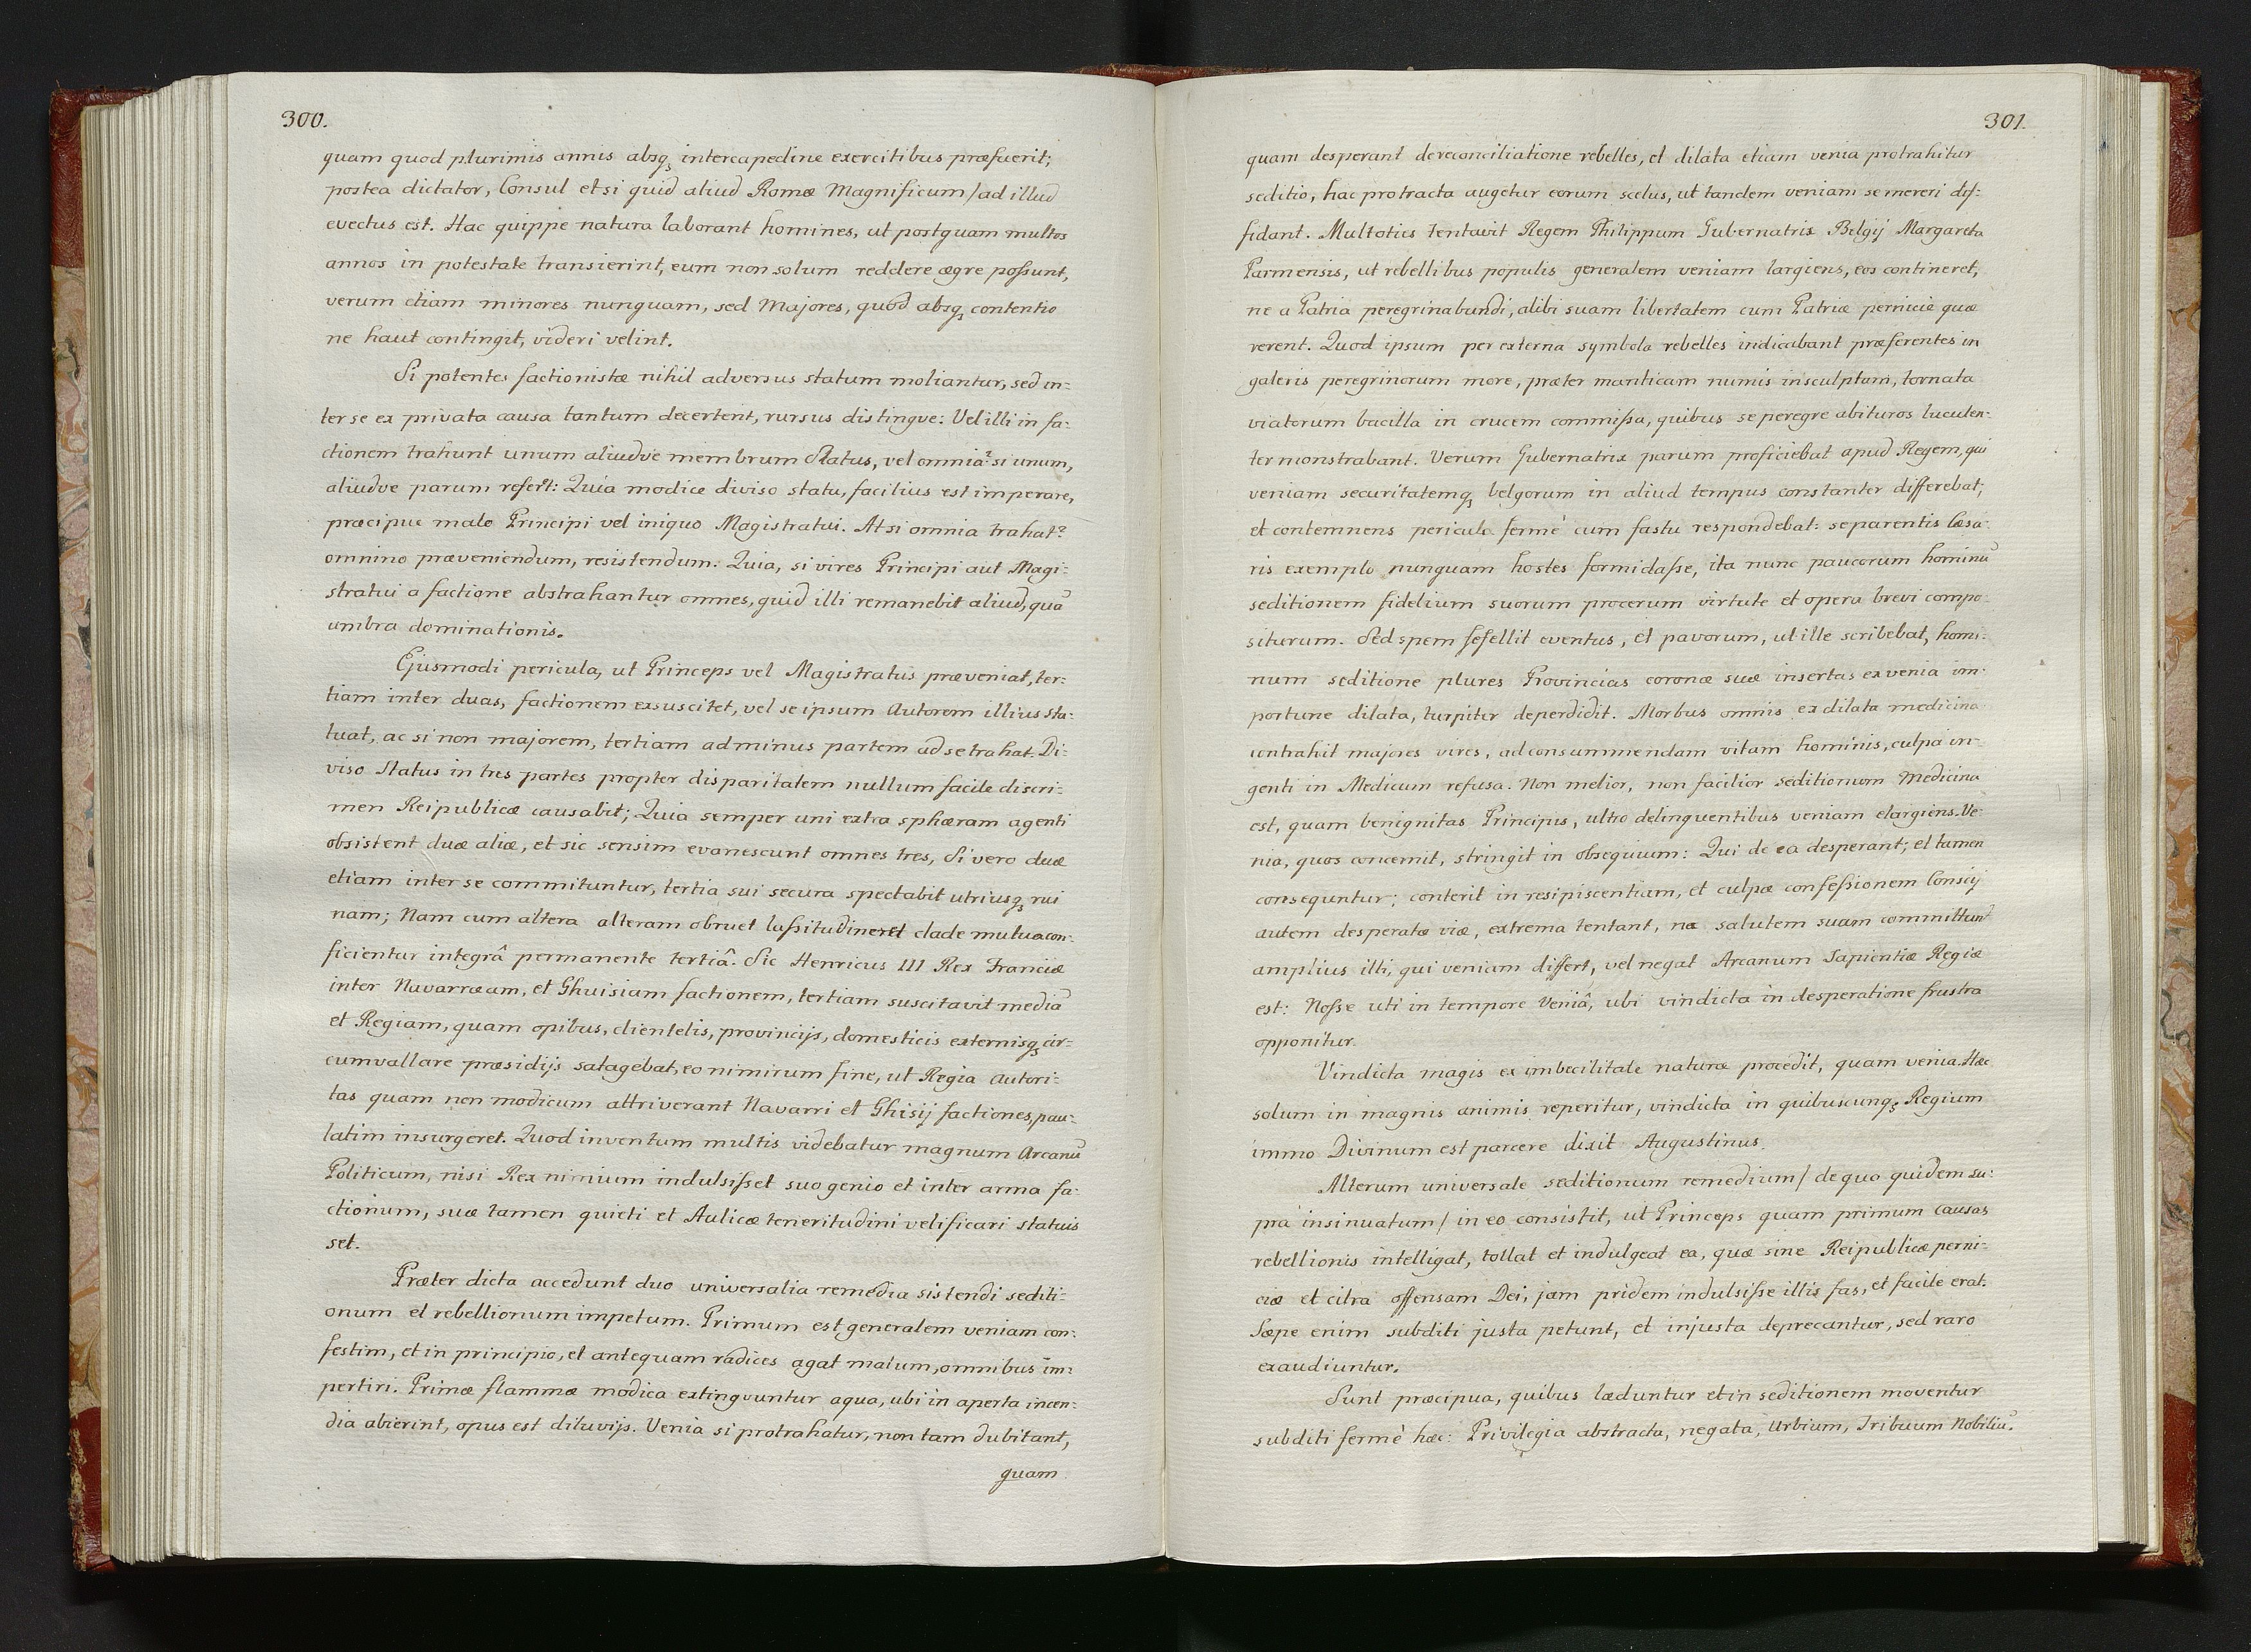 300.
quam quod plurimis annis absqꝫ intercapedine exercitibus præfuerit;
postea dictator, Consul et si quid aliud Romæ Magnificum / ad illud
evectus est. Hac quippe natura laborant homines, ut postquam multos
annos in potestate transierint, eum non solum reddere ægre poſsunt,
verum etiam minores nunquam, sed Majores, quod absqꝫ contentio
ne haut contingit, videri velint.
Si potentes factionistæ nihil adversus statum moliantur, sed in-
ter se ex privata causa tantum decertent, rursus distingve: Vel illi in fa-
ctionem trahunt unum aliudve membrum Status, vel omnia? si unum,
aliudve parum refert: Quia modice diviso statu, facilius est imperare,
præcipue malo Principi vel iniquo Magistratui. At si omnia trahat?
omnino præveniendum, resistendum. Quia, si vires Principi aut Magi-
stratui a factione abstrahantur omnes, quid illi remanebit aliud, quā
umbra dominationis.
Ejusmodi pericula, ut Princeps vel Magistratus præveniat, ter-
tiam inter duas, factionem exsuscitet, vel se ipsum Autorem illius sta-
tuat, ac si non majorem, tertiam ad minus partem ad se trahat. Di-
viso Status in tres partes propter disparitatem nullum facile discri-
men Reipublicæ causabit; Quia semper uni extra sphæram agenti
obsistent duæ aliæ, et sic sensim evanescunt omnes tres, Si vero duæ
etiam inter se commituntur, tertia sui secura spectabit utriusqꝫ rui
nam; Nam cum altera alteram obruet laſsitudine et clade mutua con-
ficientur integrâ permanente tertiâ. Sic Henricus III Rex Franciæ
inter Navarræam, et Ghuisiam factionem, tertiam suscitavit mediā
et Regiam, quam opibus, clientelis, provincijs, domesticis externisqꝫ cir-
cumvallare præsidijs satagebat, eo nimirum fine, ut Regia Autori-
tas quam non modicum attriverant Navarri et Ghisij factiones, pau-
latim insurgeret. Quod inventum multis videbatur magnum Arcanū
Politicum, nisi Rex nimium indulsiſset suo genio et inter arma fa-
ctionum, suæ tamen quieti et Aulicæ teneritudini velificari statuis
set.
Præter dicta accedunt duo universalia remedia sistendi sediti-
onum et rebellionum impetum. Primum est generalem veniam con-
festim, et in principio, et antequam radices agat malum, omnibus im-
pertiri. Primæ flammæ modica extingvuntur aqua, ubi in aperta incen-
dia abierint, opus est diluvijs. Venia si protrahatur, non tam dubitant,
quam
301.
quam desperant de reconciliatione rebelles, et dilata etiam venia protrahitur
seditio, hac protracta augetur eorum scelus, ut tandem veniam se mereri dif-
fidant. Multoties tentavit Regem Philippum Gubernatrix Belgij Margareta
Parmensis, ut rebellibus populis generalem veniam largiens, eos contineret,
ne a Patria peregrinabundi, alibi suam libertatem cum Patriæ pernicie quæ
rerent. Quod ipsum per externa symbola rebelles indicabant præferentes in
galeris peregrinorum more, præter manticam numis insculptam, tornata
viatorum bacilla in crucem commiſsa, quibus se peregre abituros luculen-
ter monstrabant. Verum Gubernatrix parum proficiebat apud Regem, qui
veniam securitatemqꝫ belgorum in aliud tempus constanter differebat,
et contemnens pericula fermè cum fastu respondebat: se parentis Cæsa-
ris exemplo nunquam hostes formidaſse, ita nunc paucorum hominū
seditionem fidelium suorum procerum virtute et opera brevi compo-
siturum. Sed spem fefellit eventus, et pavorum, ut ille scribebat, homi-
num seditione plures Provincias coronæ suæ insertas ex venia im-
portune dilata, turpiter deperdidit. Morbus omnis ex dilata medicina
contrahit majores vires, ad consummendam vitam hominis, culpa in-
genti in Medicum refusa. Non melior, non facilior seditionum Medicina
est, quam benignitas Principis, ultro delinquentibus veniam elargiens. Ve-
nia, quos concernit, stringit in obsequium: Qui de ea desperant; et tamen
consequntur; conterit in resipiscentiam, et culpæ confeſsionem Conscij
autem desperatæ viæ, extrema tentant, ne salutem suam committant
amplius illi, qui veniam differt, vel negat Arcanum Sapientiæ Regiæ
est: Noſse uti in tempore Veniâ, ubi vindicta in desperatione frustra
opponitur.
Vindicta magis ex imbecilitate naturæ procedit, quam venia. Hæc
solum in magnis animis reperitur, vindicta in quibuscunqꝫ Regium
immo Divinum est parcere dixit Augustinus.
Alterum universale seditionum remedium / de quo quidem su-
pra insinuatum / in eo consistit, ut Princeps quam primum causas
rebellionis intelligat, tollat et indulgeat ea, quæ sine Reipublicæ perni-
ciæ et citra offensam Dei, jam pridem indulsiſse illis fas, et facile erat.
Sæpe enim subditi justa petunt, et injusta deprecantur, sed raro
exaudiuntur.
Sunt præcipua, quibus læduntur et in seditionem moventur
subditi fermè hæc: Privilegia abstracta, negata, Urbium, Tribuum Nobiliū.